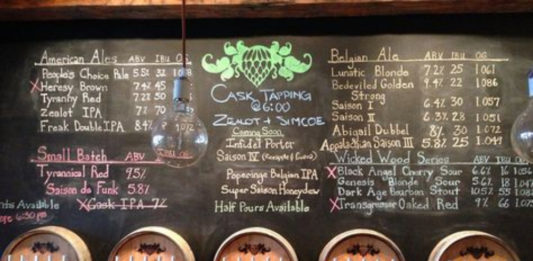 American Ales ABV IBU OG
People's Choice Pale 5.5%
Heresy Brown 7.4% 45
Tyranny Red 50
Zealot IPA 7% 70
Freak Double IPA
Small Batch ABV IBU OG
Tyrannical Red 9.5%
Saison du Funk 5.8%
Cask IPA 7%
Available
Cask Tapping
@ 6:00
Zealot + Simcoe
Coming Soon
Infidel Porter
Saison IV
Poperinge Belgian IPA
Super Saison Honeydew
Half Pours Available
Belgian Ale ABV IBU OG
Lunatic Blonde 7.2% 25 1.061
Bedeviled Golden Strong 9.4% 22 1.086
Saison I 6.4% 30 1.057
Saison II 28 1.051
Abigail Dubbel 8% 30 1.072
Appalachian Saison III 5.8% 25 1.049
Wicked Wood Series ABV IBU OG
Black Angel Cherry Sour 6.6% 16
Genesis Blonde Sour 5.6% 18
Dark Age Bourbon Stout 10.5% 55
Transgressor Oaked Red 9% 66